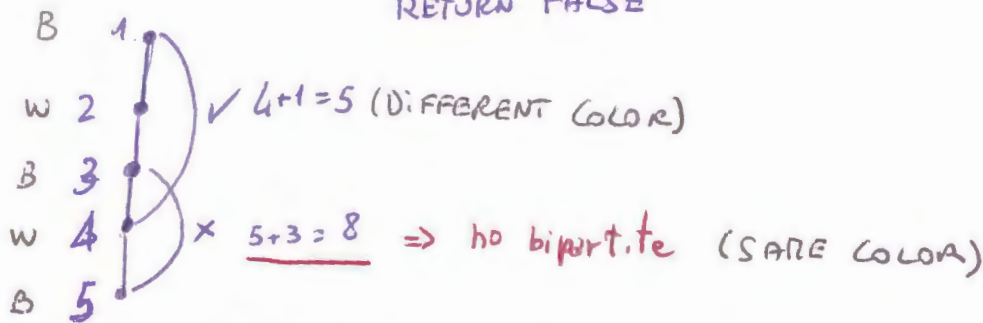 RETURN FALSE
B 1
W 2 ✓ 4+1=5 (DIFFERENT COLOR)
B 3
W 4 × 5+3=8 => no bipartite (SAME COLOR)
B 5